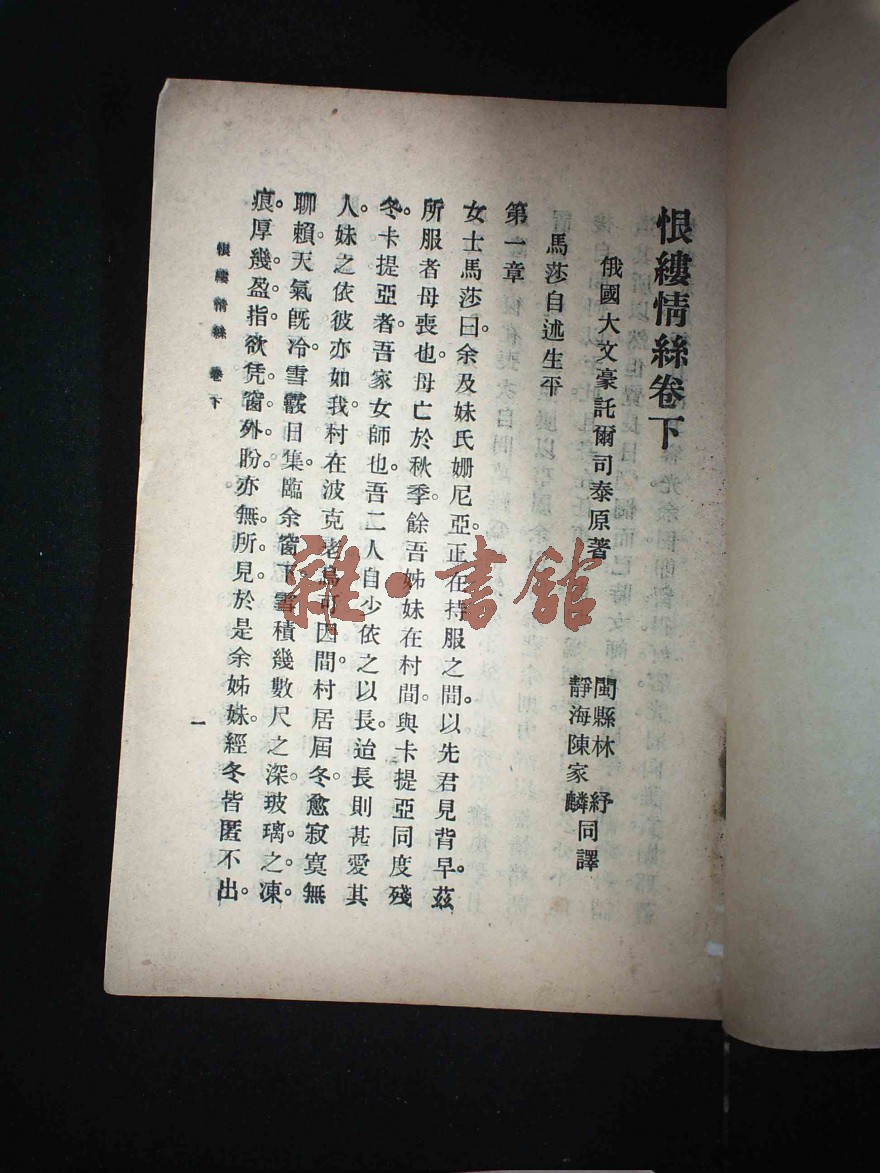 恨縷情絲卷下
俄國大文豪託爾司泰原著
閩縣林 紓
靜海陳家麟
同譯
馬莎自述生平
第一章
女士馬莎曰。余及妹氏姍尼亞。正在持服之間。以先君見背早。茲
所服者母喪也。母亡於秋季。餘吾姊妹在村間。與卡提亞同度殘
冬。卡提亞者。吾家女師也。吾二人自少依之以長。迨長則甚愛其
人。妹之依彼亦如我。村在波克老 可因間。村居屆冬。愈寂寞無
聊賴。天氣旣冷。雪霰日集。臨余窗下。雪積幾數尺之深。玻璃之凍
痕。厚幾盈指。欲凭窗外盼。亦無所見。於是余姊妹經冬皆匿不出。
恨縷情絲 卷下
一
雜·書館